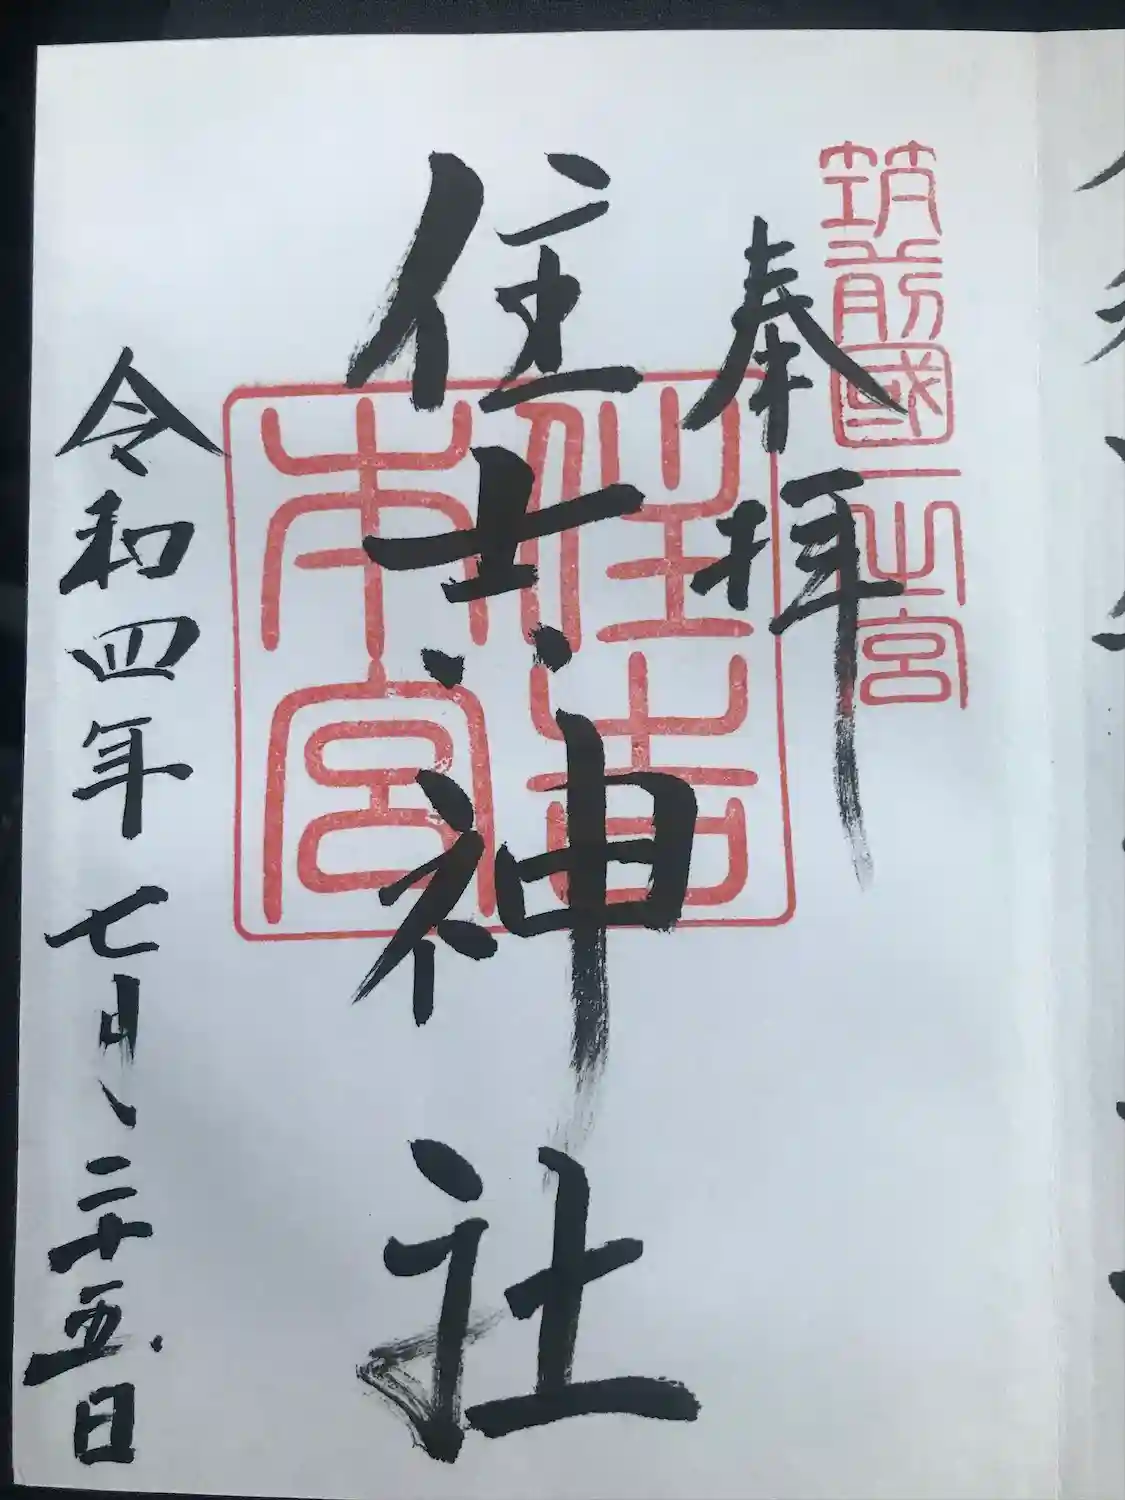 筑前國一之宮
奉拝
住吉神社
住吉本宮
令和四年七月二十五日